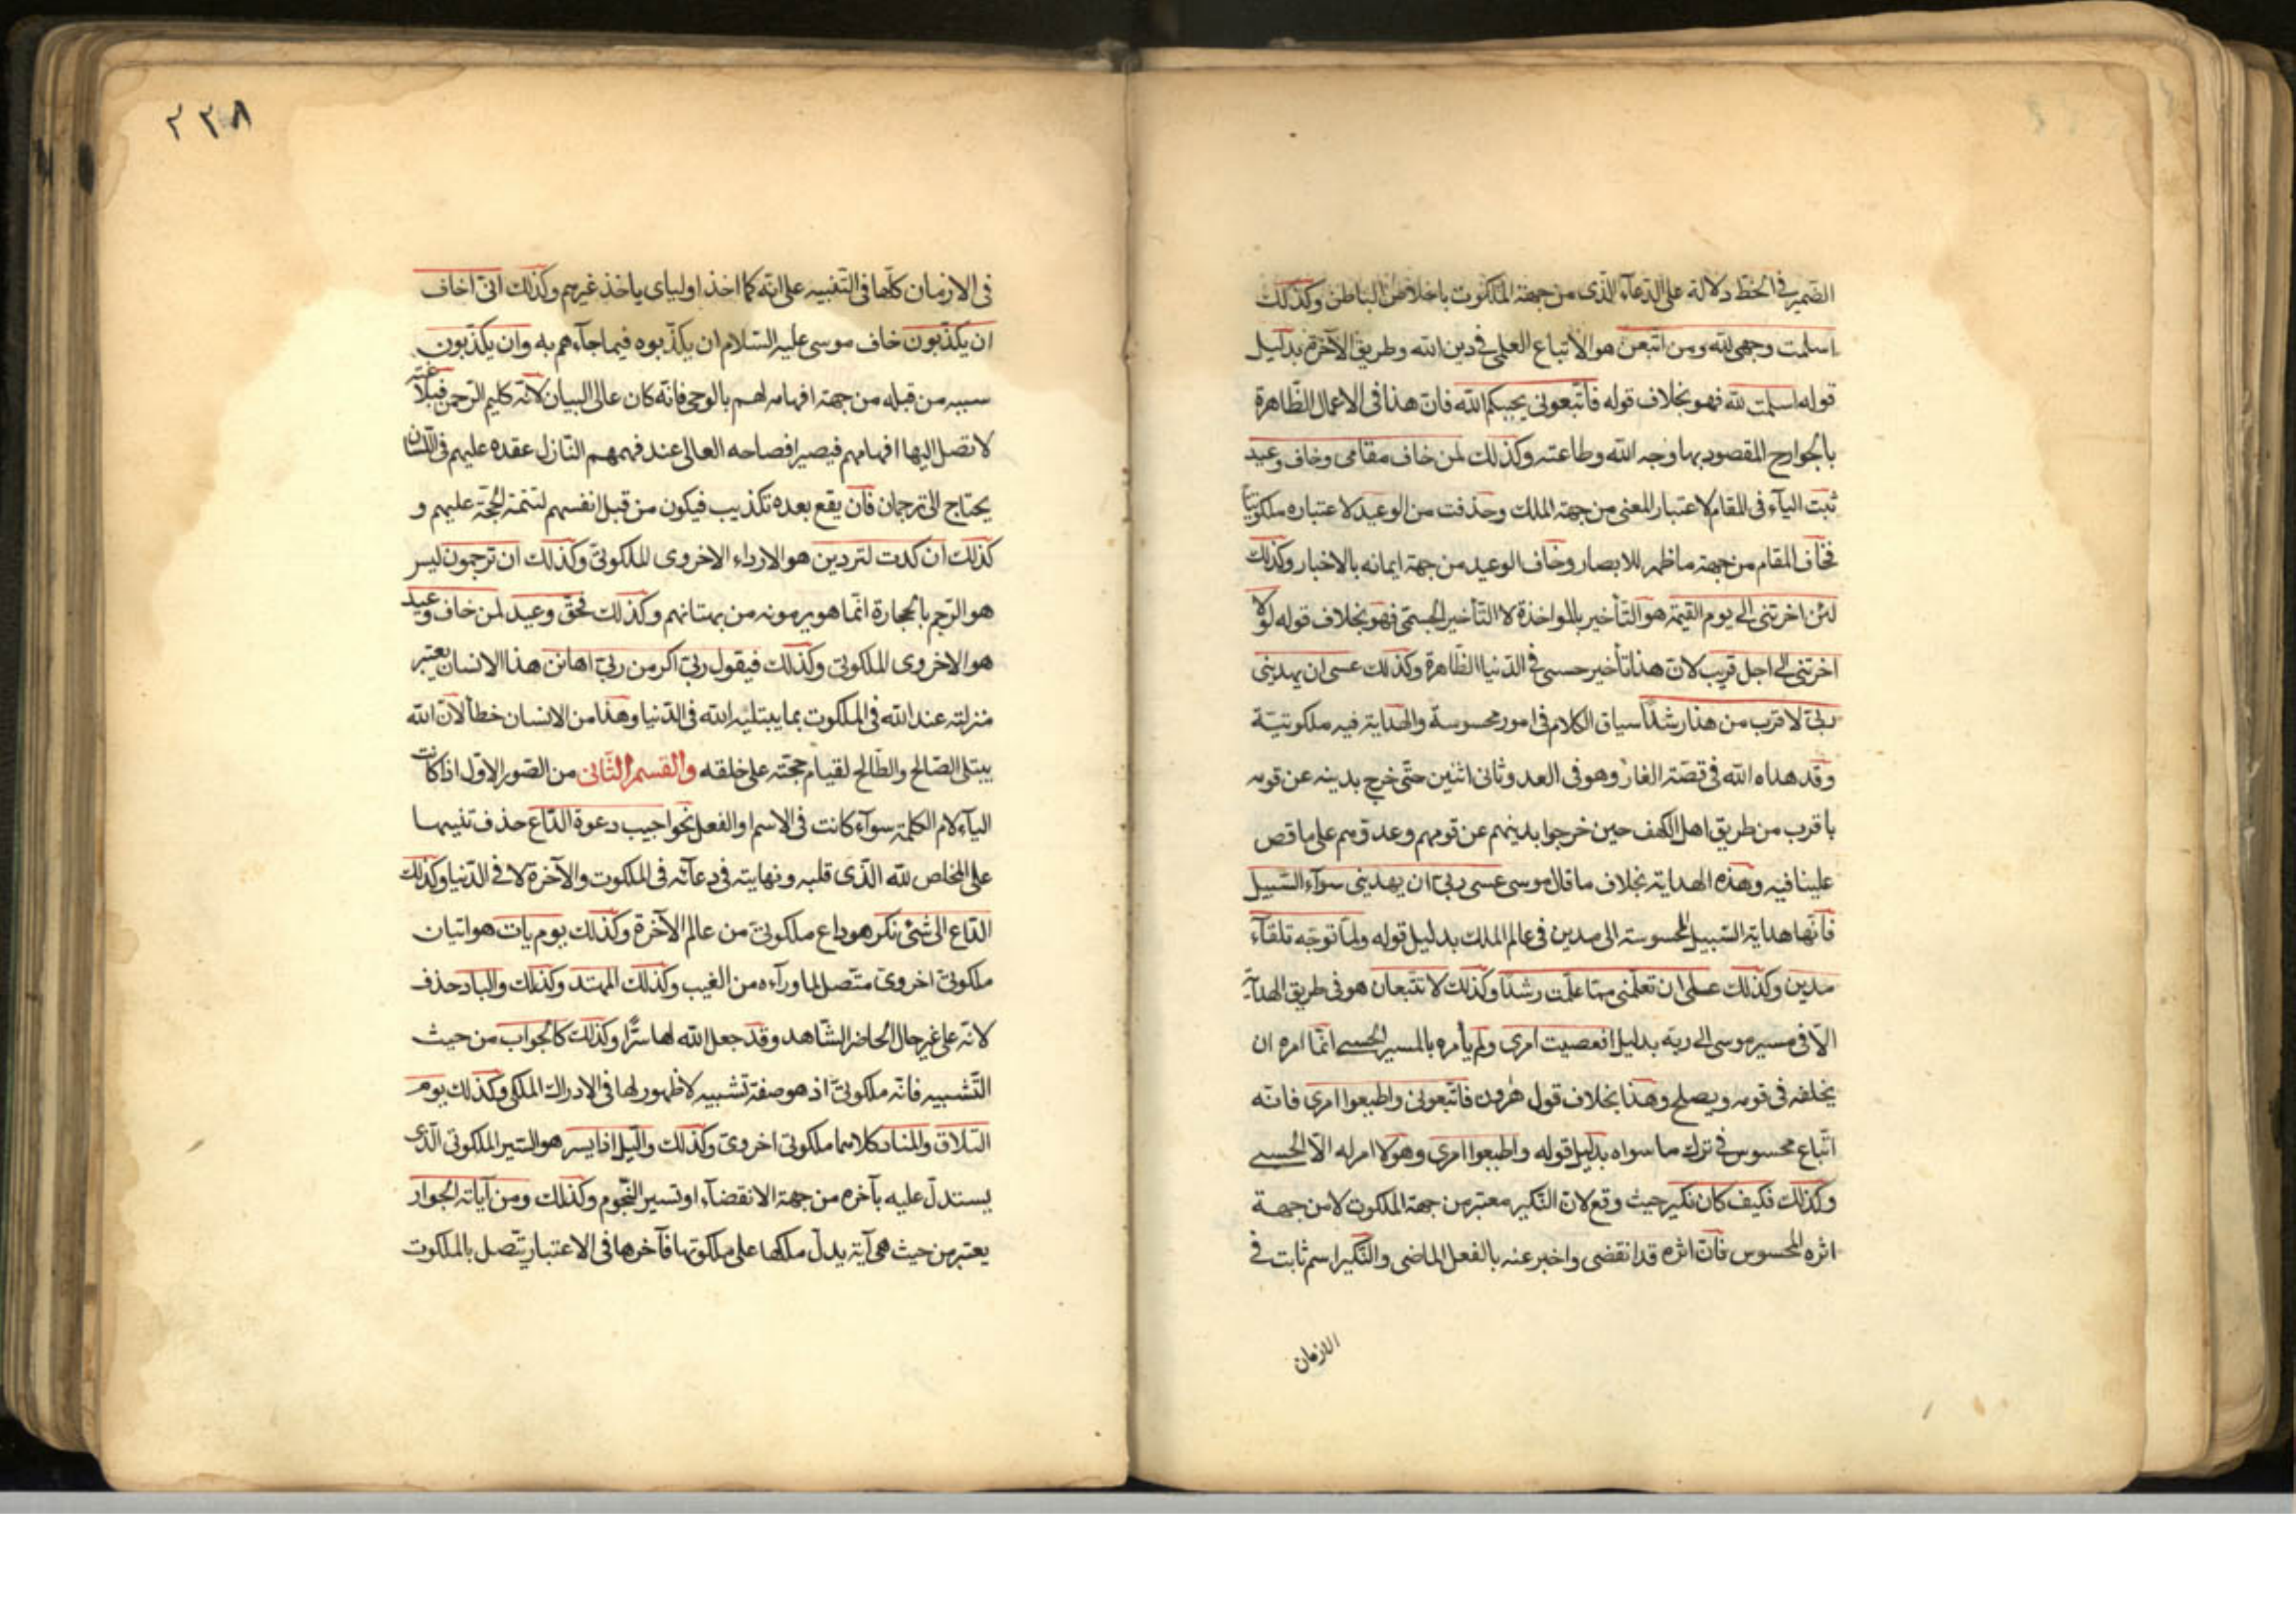 الضمير في الخط دلالة على الدعاء الذى من جهة الملكوت باخلاص الباطن وكذلك
اسلمت وجهى لله ومن اتبعن هو الاتباع العلمى في دين الله وطريق الآخرة بدليل
قوله اسلمت لله فهو بخلاف قوله فاتبعونى يحببكم الله فان هذا فى الاعمال الظاهرة
بالجوارح المقصود بها وجه الله وطاعته وكذلك لمن خاف مقامى وخاف وعيد
ثبت الياء فى المقام لاعتبار المعنى من جهة الملك وحذفت من الوعيد لاعتباره ملكوتيا
فخاف المقام من جهة ما ظهر للابصار وخاف الوعيد من جهة ايمانه بالاخبار وكذلك
لئن اخرتنى الى يوم القيمة هو التأخير بالمواخذة لا التأخير الجسمى فهو بخلاف قوله لولا
اخرتنى الى اجل قريب لان هذا تأخير حسى في الدنيا الظاهرة وكذلك عسى ان يهدينى
ربى لاقرب من هذا رشدا سياق الكلام فى امور محسوسة والهداية فيه ملكوتية
وقد هداه الله فى قصة الغار وهو فى العدو ثانى اثنين حتى خرج بدينه عن قومه
باقرب من طريق اهل الكهف حين خرجوا بدينهم عن قومهم وعددهم على ما قص
علينا فيه وهذه الهداية بخلاف ما قال موسى عسى ربى ان يهدينى سوآء السبيل
فانها هداية السبيل المحسوسة الى مدين فى عالم الملك بدليل قوله ولما توجه تلقآء
مدين وكذلك على ان تعلمنى مما علمت رشدا وكذلك لا تتبعان هو فى طريق الهداية
الا فى مسير موسى الى ربه بدليل افعصيت امرى ولم يأمره بالمسير الحسى انما امره ان
يخلفه فى قومه ويصلح وهذا بخلاف قول هٰرون فاتبعونى واطيعوا امرى فانه
اتباع محسوس في ترك ما سواه بدليل قوله واطيعوا امرى وهو لا امر له الا الحسى
وكذلك فكيف كان نكير حيث وقع لان النكير معتبر من جهة الملكوت لا من جهة
اثره المحسوس فان اثره قد انقضى واخبر عنه بالفعل الماضى والنكير اسم ثابت في
الازمان
٢٣٨
فى الازمان كلها فى التنبيه على انه كما اخذ اولياى ياخذ غيرهم وكذلك انى اخاف
ان يكذبون خاف موسى عليه السلام ان يكذبوه فيما جآءهم به وان يكذبون
سببه من قبله من جهة افهامه لهم بالوحى فانه كان عالى البيان لانه كليم الرحمن فبلاغته
لا تصل اليها افهامهم فيصير افصاحه العالى عند فهمهم النازل عقده عليهم فى اللسان
يحتاج الى ترجمان فان يقع بعده تكذيب فيكون من قبل انفسهم لتتمة الحجة عليهم و
كذلك ان كدت لتردين هو الارداء الاخروى الملكوتى وكذلك ان ترجمون ليس
هو الرجم بالحجارة انما هو يرمونه من بهتانهم وكذلك فحق وعيد لمن خاف وعيد
هو الاخروى الملكوتى وكذلك فيقول ربى اكرمن ربى اهانن هذا الانسان يعتبر
منزلته عند الله فى الملكوت بما يبتليه الله فى الدنيا وهذا من الانسان خطأ لان الله
يبتلى الصالح والطالح لقيام حجته على خلقه والقسم الثانى من الضور الاول اذا كانت
الياء لام الكلمة سوآء كانت فى الاسم او الفعل نحو اجيب دعوة الداع حذف تنبيها
على المخلص لله الذى قلبه ونهايته فى دعائه فى الملكوت والآخرة لا فى الدنيا وكذلك
الداع الى شئ نكر هو داع ملكوتى من عالم الآخرة وكذلك يوم يات هو اتيان
ملكوتى اخروى متصل لما ورآءه من الغيب وكذلك المهتد وكذلك والباد حذف
لانه على غير حال الحاضر الشاهد وقد جعل الله لها سرا وكذلك كالجواب من حيث
التشبيه فانه ملكوتى اذ هو صفة تشبيه لا ظهور لها فى الادراك الملكى وكذلك يوم
التلاق والمناد كلاهما ملكوتى اخروى وكذلك والليل اذا يسر هو السير الملكوتى الذى
يستدل عليه بآخره من جهة الانقضآء او تسير النجوم وكذلك ومن آياته الجوار
يعتبر من حيث هى آية يدل ملكها على ملكوتها فآخرها فى الاعتبار يتصل بالملكوت